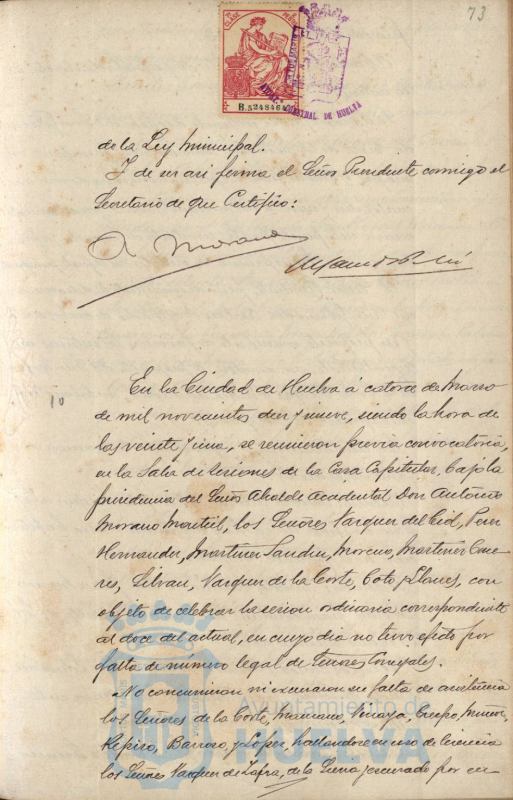 73
B.5248464
MUNICIPAL DE HUELVA
de la Ley municipal.
Y de ser asi firma el Señor Presidente conmigo el
Secretario de que Certifico:
A Morano
10
En la Ciudad de Huelva á catorce de Marzo
de mil novecientos diez y nueve, siendo la hora de
las veinte y una, se reunieron previa convocatoria,
en la Sala de sesiones de la Casa Capitular, bajo la
presidencia del Señor Alcalde Accidental Don Antonio
Morano Montiel, los Señores Vazquez del Cid, Perez
Hernandez, Martinez Sandez, Moreno, Martinez Case-
res, Silvan, Vazquez de la Corte, Coto y Llanes, con
objeto de celebrar la sesion ordinaria correspondiente
al doce del actual, en cuyo dia no tuvo efecto por
falta de número legal de Señores Concejales.
No concurrieron ni excusaron su falta de asistencia
los Señores de la Corte, Manzano, Crespo, Muñoz,
Repiso, Barroso y Lopez, hallandose en uso de licencia
los Señores Vazquez de Zafra, de la y excusado por en
Ayuntamiento de
HUELVA